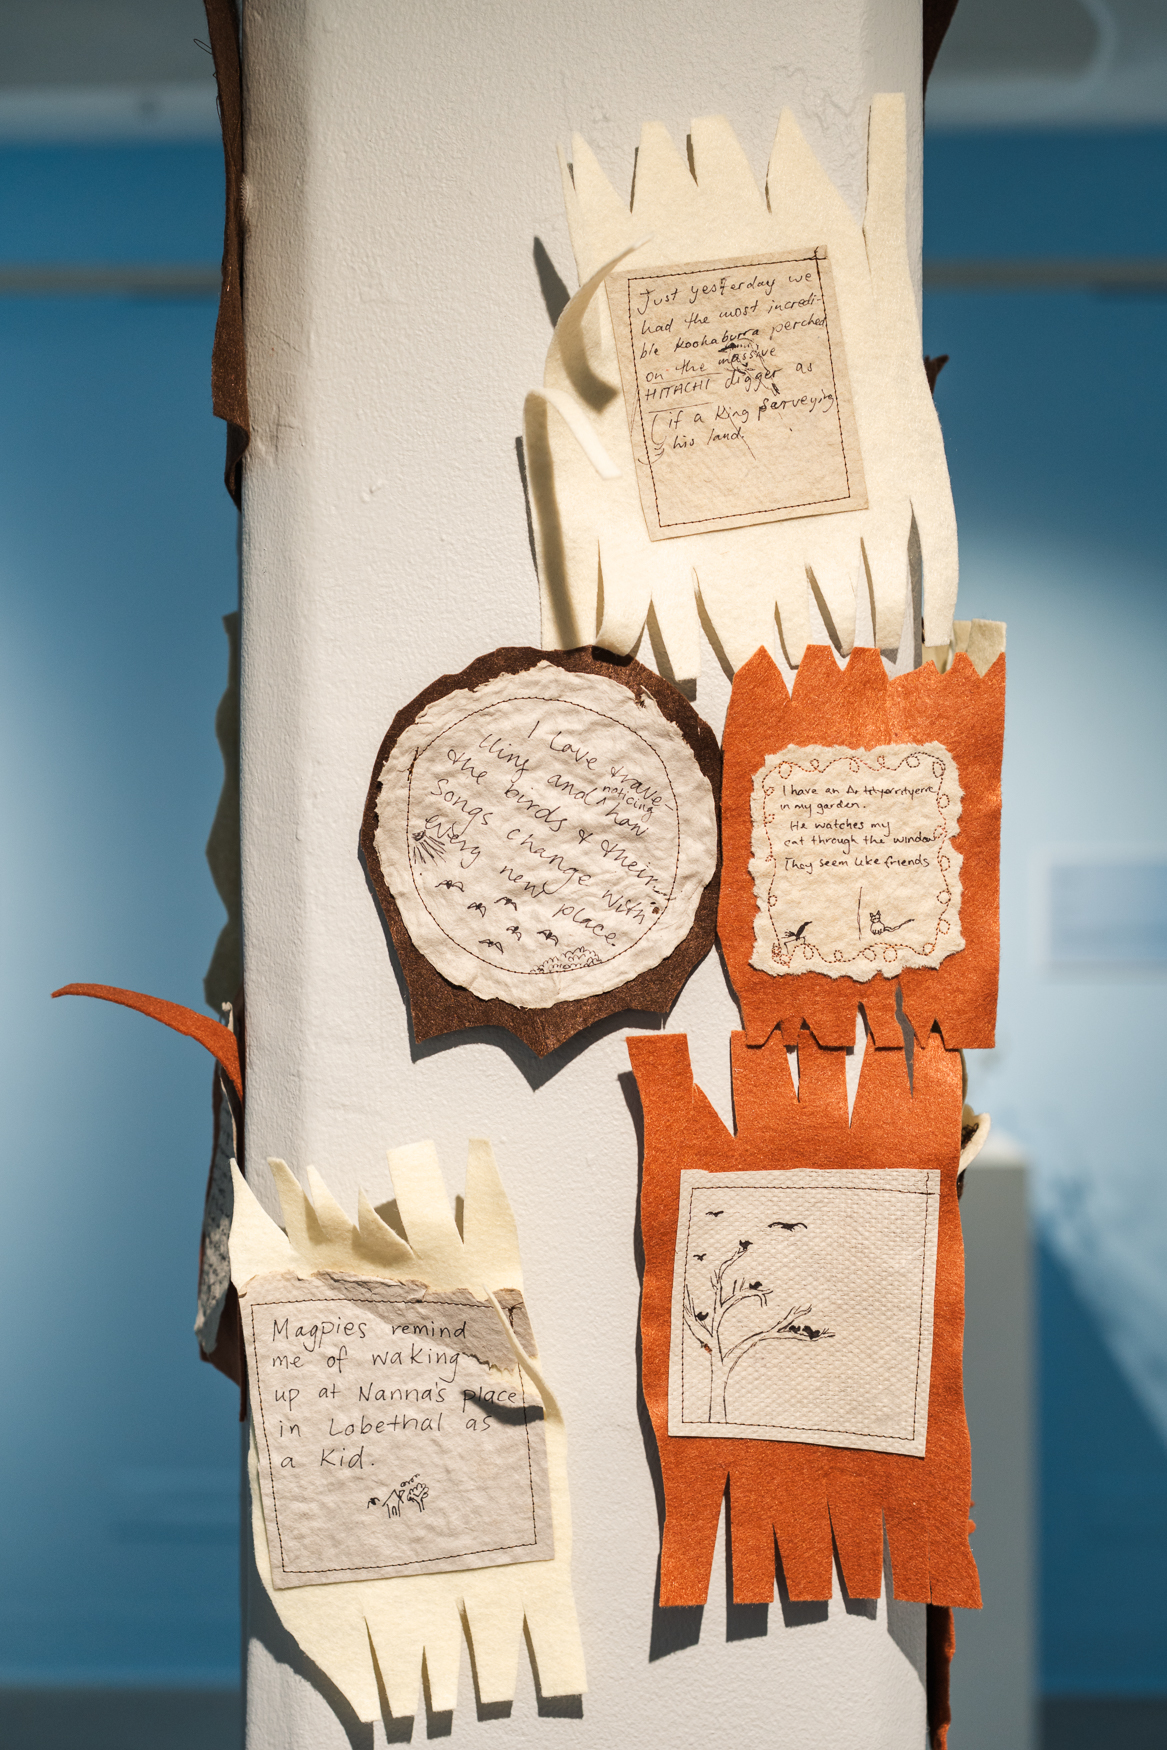 Just yesterday we
had the most incredi-
ble Kookaburra perched
on the massive
HITACHI digger as
if a King surveying
his land.
I love trave-
lling and noticing how
the birds & their
songs change with
every new place.
I have an
in my garden.
He watches my
cat through the window
They seem like friends
Magpies remind
me of waking
up at Nanna's place
in Lobethal as
a Kid.